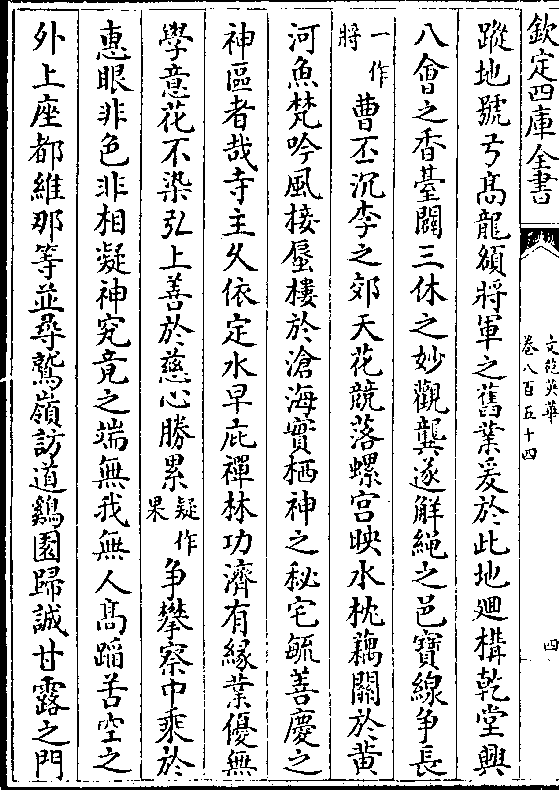 欽定四庫全書
文苑英華
卷八百五十四
四
蹤地號亏髙龍額將軍之舊業爰於此地廻構乾堂興
八會之香臺闢三休之妙觀龔遂解繩之邑寶線争長
一作將曹丕沉李之郊天花競落螺宫映水枕藕關於黄
河魚梵吟風接蜃樓於滄海實栖神之秘宅毓善慶之
神區者哉寺主久依定水早庇禪林功濟有縁業優無
學意花不染弘上善於慈心勝累疑作果争攀察中乘於
惠眼非色非相凝神究竟之端無我無人髙蹈苦空之
外上座都維那等並尋鷲嶺訪道鷄園歸誠甘露之門